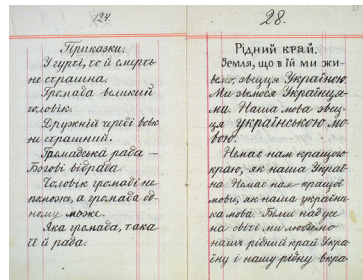 124.
Приказки.
У гурті, то й смерть
не страшна.
Громада великий
чоловік.
Дружній череді вовк
не страшний.
Громадська рада —
Богові відрада.
Чоловік громаді не
поможе, а громада од-
ному може.
Яка громада, така
її й рада.
28.
Рідний край.
Земля, що в їй ми жи-
вемо, звецця Україною.
Ми звемося Українця-
ми. Наша мова звец-
ця українською мо-
вою.
Немає нам кращого
краю, як наша Украї-
на. Немає нам кращої
мови, як наша українсь-
ка мова. Більш над усе
на світі ми любемо
наш рідний край Укра-
їну і нашу рідну вкра-